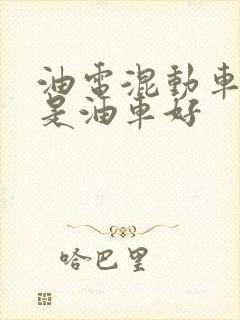 油電混動車
是油車好
哈巴里